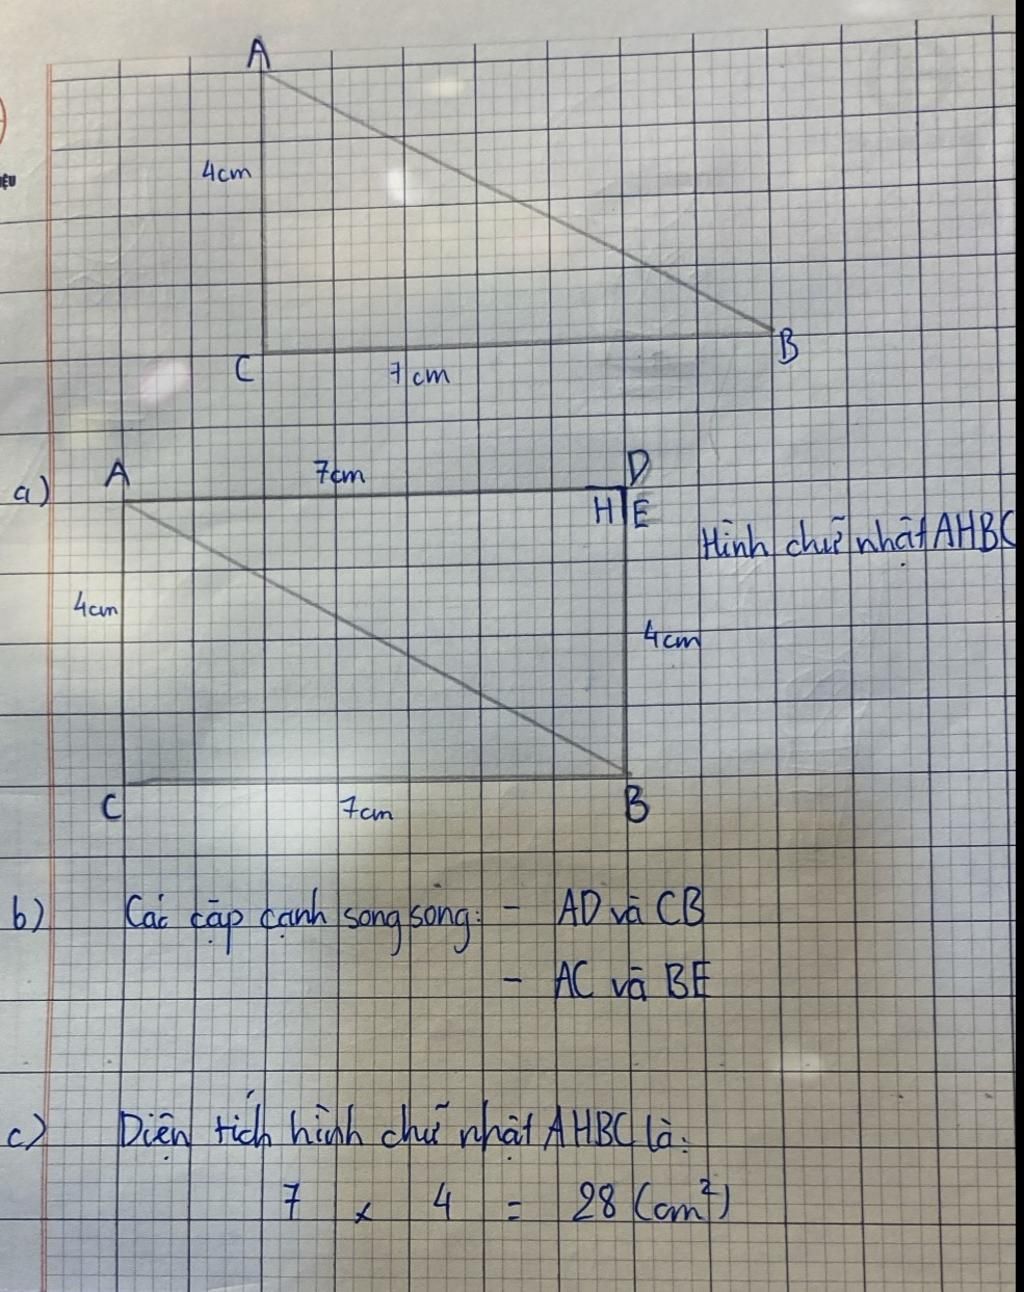 A
4cm
C
7cm
B
ỆU
a)
A
7cm
D
H E
Hình chữ nhật AHBC
4cm
4cm
C
7cm
B
b) Các cặp cạnh song song: - AD và CB
- AC và BE
c) Diện tích hình chữ nhật AHBC là:
7 x 4 = 28 (cm²)